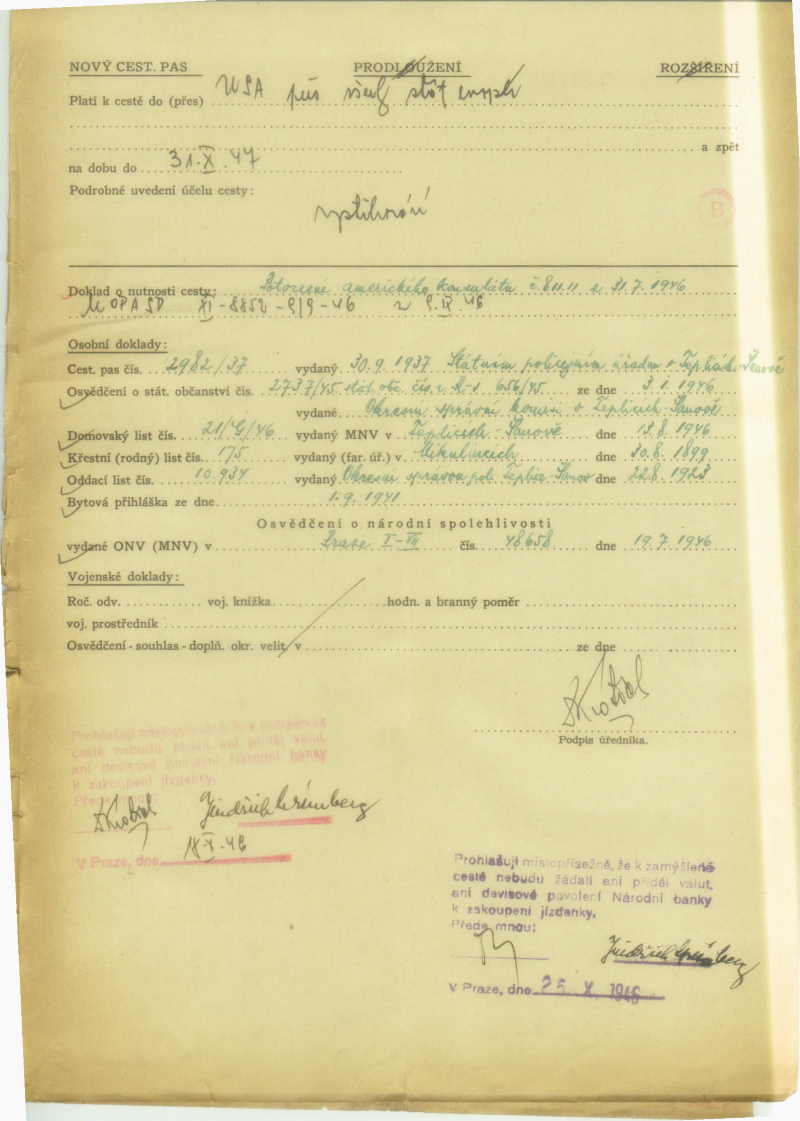 NOVÝ CEST. PAS PRODLOUŽENÍ ROZŠÍŘENÍ
Platí k cestě do (přes) USA přes všech stát evrop.
a zpět
na dobu do 31. X. 47
Podrobné uvedení účelu cesty:
vystěhování
B
Doklad o nutnosti cesty: Potvrzení amerického konsulátu č. 811.11 z 31. 7. 1946
M OPA SD XI - 8852 - 9/9 - 46 z 9. IX. 46
Osobní doklady:
Cest. pas čís. 2982/37 vydaný 30. 9. 1937 Státním policejním úřadem v Teplicích Šanově
Osvědčení o stát. občanství čís. 2737/45 stát. obč. čís. z R-1 656/45 ze dne 3. 1. 1946
vydané Okresní správní komisí v Teplicích Šanově
Domovský list čís. 21/ /46 vydaný MNV v Teplicích - Šanově dne 13. 8. 1946
Křestní (rodný) list čís. 175 vydaný (far. úř.) v Mikulincích dne 30. 8. 1899
Oddací list čís. 10.934 vydaný Okresní správou pol. Teplice Šanov dne 22. 8. 1923
Bytová přihláška ze dne 1. 9. 1941
Osvědčení o národní spolehlivosti
vydané ONV (MNV) v Praze I - VII čís. 48658 dne 19. 7. 1946
Vojenské doklady:
Roč. odv. voj. knížka hodn. a branný poměr
voj. prostředník
Osvědčení - souhlas - doplň. okr. velit. v ze dne
Podpis úředníka.
Prohlašuji místopřísežně, že k zamýšlené
cestě nebudu žádati ani příděl valut,
ani devisové povolení Národní banky
k zakoupení jízdenky.
Přede mnou:
Jindřich Grünberg
V Praze, dne 18. X. 46
Prohlašuji místopřísežně, že k zamýšlené
cestě nebudu žádati ani příděl valut,
ani devisové povolení Národní banky
k zakoupení jízdenky.
Přede mnou:
Jindřich Grünberg
V Praze, dne 25. X. 1946